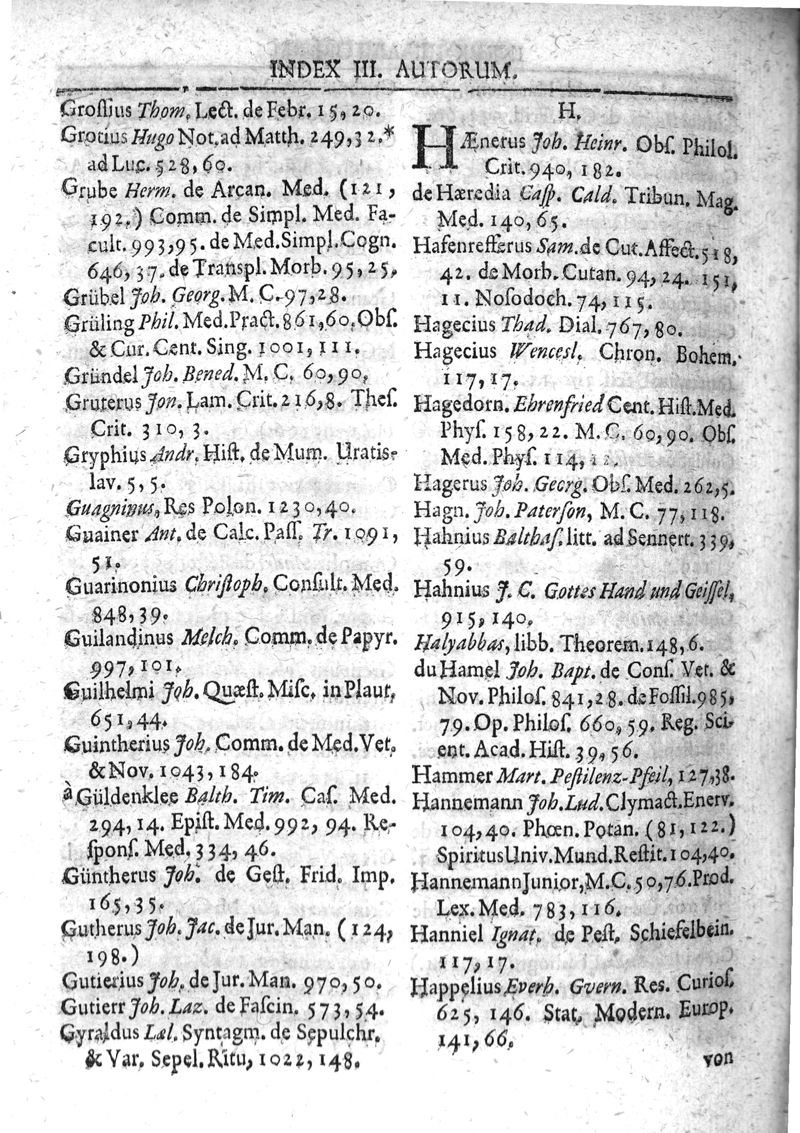 INDEX III. AUTORUM.
Grossius Thom. Lect. de Febr. 15, 20.
Grotius Hugo Not. ad Matth. 249, 32.*
ad Luc. 528, 60.
Grube Herm. de Arcan. Med. (121,
192.) Comm. de Simpl. Med. Fa-
cult. 993, 95. de Med. Simpl. Cogn.
646, 37. de Transpl. Morb. 95, 25.
Grübel Joh. Georg. M. C. 97, 28.
Grüling Phil. Med. Pract. 861, 60. Obſ.
& Cur. Cent. Sing. 1001, 111.
Gründel Joh. Bened. M. C. 60, 90.
Gruterus Jon. Lam. Crit. 216, 8. Theſ.
Crit. 310, 3.
Gryphius Andr. Hiſt. de Mum. Uratis-
lav. 5, 5.
Guagninus, Res Polon. 1230, 40.
Guainer Ant. de Calc. Paſſ. Tr. 1091,
51.
Guarinonius Chriſtoph. Conſult. Med.
848, 39.
Guilandinus Melch. Comm. de Papyr.
997, 101.
Guilhelmi Joh. Quæſt. Miſc. in Plaut.
651, 44.
Guintherius Joh. Comm. de Med. Vet.
& Nov. 1043, 184.
à Güldenklee Balth. Tim. Caſ. Med.
294, 14. Epiſt. Med. 992, 94. Re-
ſponſ. Med. 334, 46.
Güntherus Joh. de Geſt. Frid. Imp.
165, 35.
Gutherus Joh. Jac. de Jur. Man. (124,
198.)
Gutierius Joh. de Jur. Man. 970, 50.
Gutierr Joh. Laz. de Faſcin. 573, 54.
Gyraldus Læl. Syntagm. de Sepulchr.
& Var. Sepel. Ritu, 1022, 148.
H.
HÆnerus Joh. Heinr. Obſ. Philol.
Crit. 940, 182.
de Hæredia Caſp. Cald. Tribun. Mag.
Med. 140, 65.
Hafenrefferus Sam. de Cut. Affect. 518,
42. de Morb. Cutan. 94, 24. 151,
11. Noſodoch. 74, 115.
Hagecius Thad. Dial. 767, 80.
Hagecius Wencesl. Chron. Bohem.
117, 17.
Hagedorn. Ehrenfried Cent. Hiſt. Med.
Phyſ. 158, 22. M. C. 60, 90. Obſ.
Med. Phyſ. 114,
Hagerus Joh. Georg. Obſ. Med. 262, 5.
Hagn. Joh. Paterſon, M. C. 77, 118.
Hahnius Balthaſ. litt. ad Sennert. 339,
59.
Hahnius J. C. Gottes Hand und Geiſſel,
915, 140.
Halyabbas, libb. Theorem. 148, 6.
du Hamel Joh. Bapt. de Conſ. Vet. &
Nov. Philoſ. 841, 28. de Foſſil. 985,
79. Op. Philoſ. 660, 59. Reg. Sci-
ent. Acad. Hiſt. 39, 56.
Hammer Mart. Peſtilenz-Pfeil, 127, 38.
Hannemann Joh. Lud. Clymact. Enerv.
104, 40. Phœn. Potan. (81, 122.)
Spiritus Univ. Mund. Reſtit. 104, 40.
Hannemann Junior, M. C. 50, 76. Prod.
Lex. Med. 783, 116.
Hanniel Ignat. de Peſt. Schiefelbein.
117, 17.
Happelius Everh. Gvern. Res. Curioſ.
625, 146. Stat. Modern. Europ.
141, 66.
von